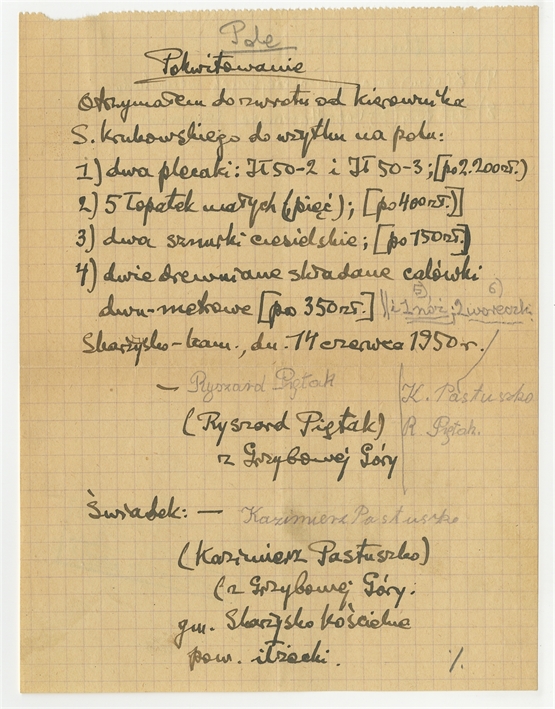 Pole
Pokwitowanie
Otrzymałem do zwrotu od kierownika
S. Krukowskiego do użytku na polu:
1) dwa plecaki: JŁ50-2 i JŁ50-3; [po 2.200zł.)
2) 5 łopatek małych (pięć); [po 400zł.)]
3) dwa sznurki ciesielskie; [po 150zł.)]
4) dwie drewniane składane calówki
5) 6)
dwu-metrowe [po 350zł.] || i 1 nóż; 2 woreczki
Skarżysko-kam., dn. 14 czerwca 1950 r.
— Ryszard Piętak
K. Pastuszko
(Ryszard Piętak)
R. Piętak.
z Grzybowej Góry
Świadek: — Kazimierz Pastuszko
(Kazimierz Pastuszko)
(z Grzybowej Góry.
gm. Skarżysko Kościelne
pow. iłżecki. ./.